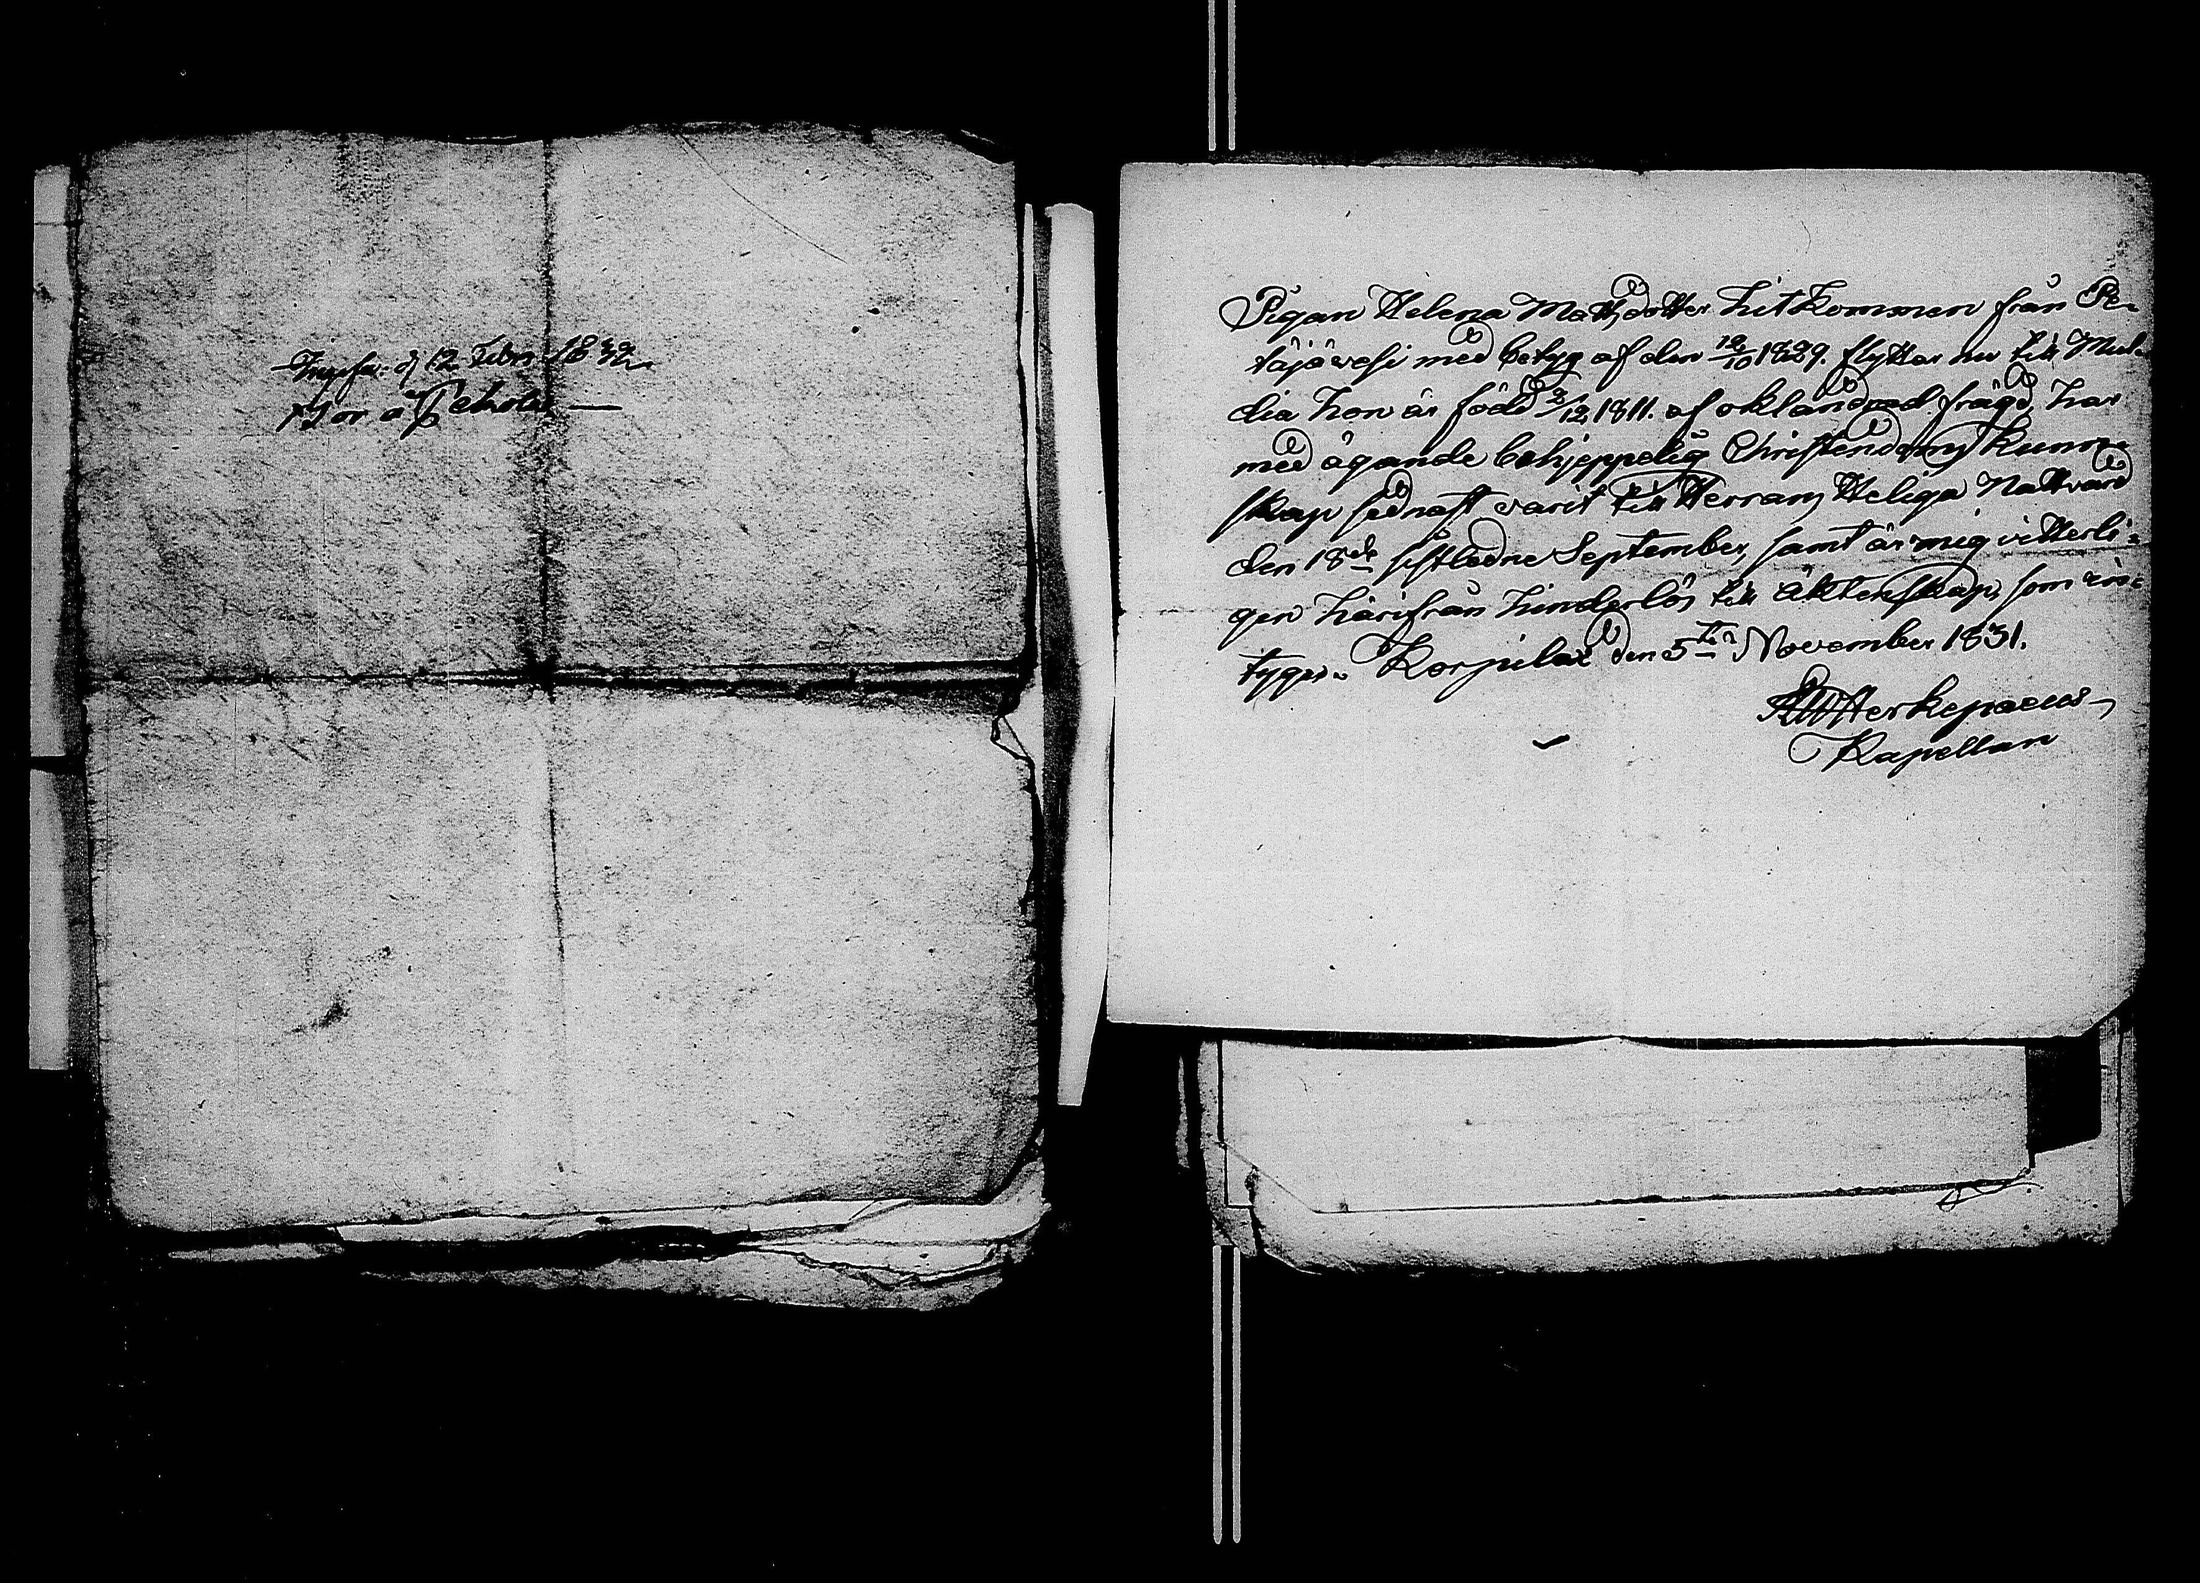 d 12 Febr. 1832.
Pigan Helena Mattsdotter hitkommen från Pe-
täjävesi med betyg af den 12/10 1829. flyttar nu till Mul-
dia hon är född 2/12 1811. af oklandrad frägd, har
med ägande behjeppelig Christendoms kunn-
skap sednast varit till Herrans Heliga Nattvard
den 18de sistledne September, samt är mig vitterli-
gen härifrån hinderlös till äktenskap, som in-
tygas. Korpilax den 5te November 1831.
Kapellan